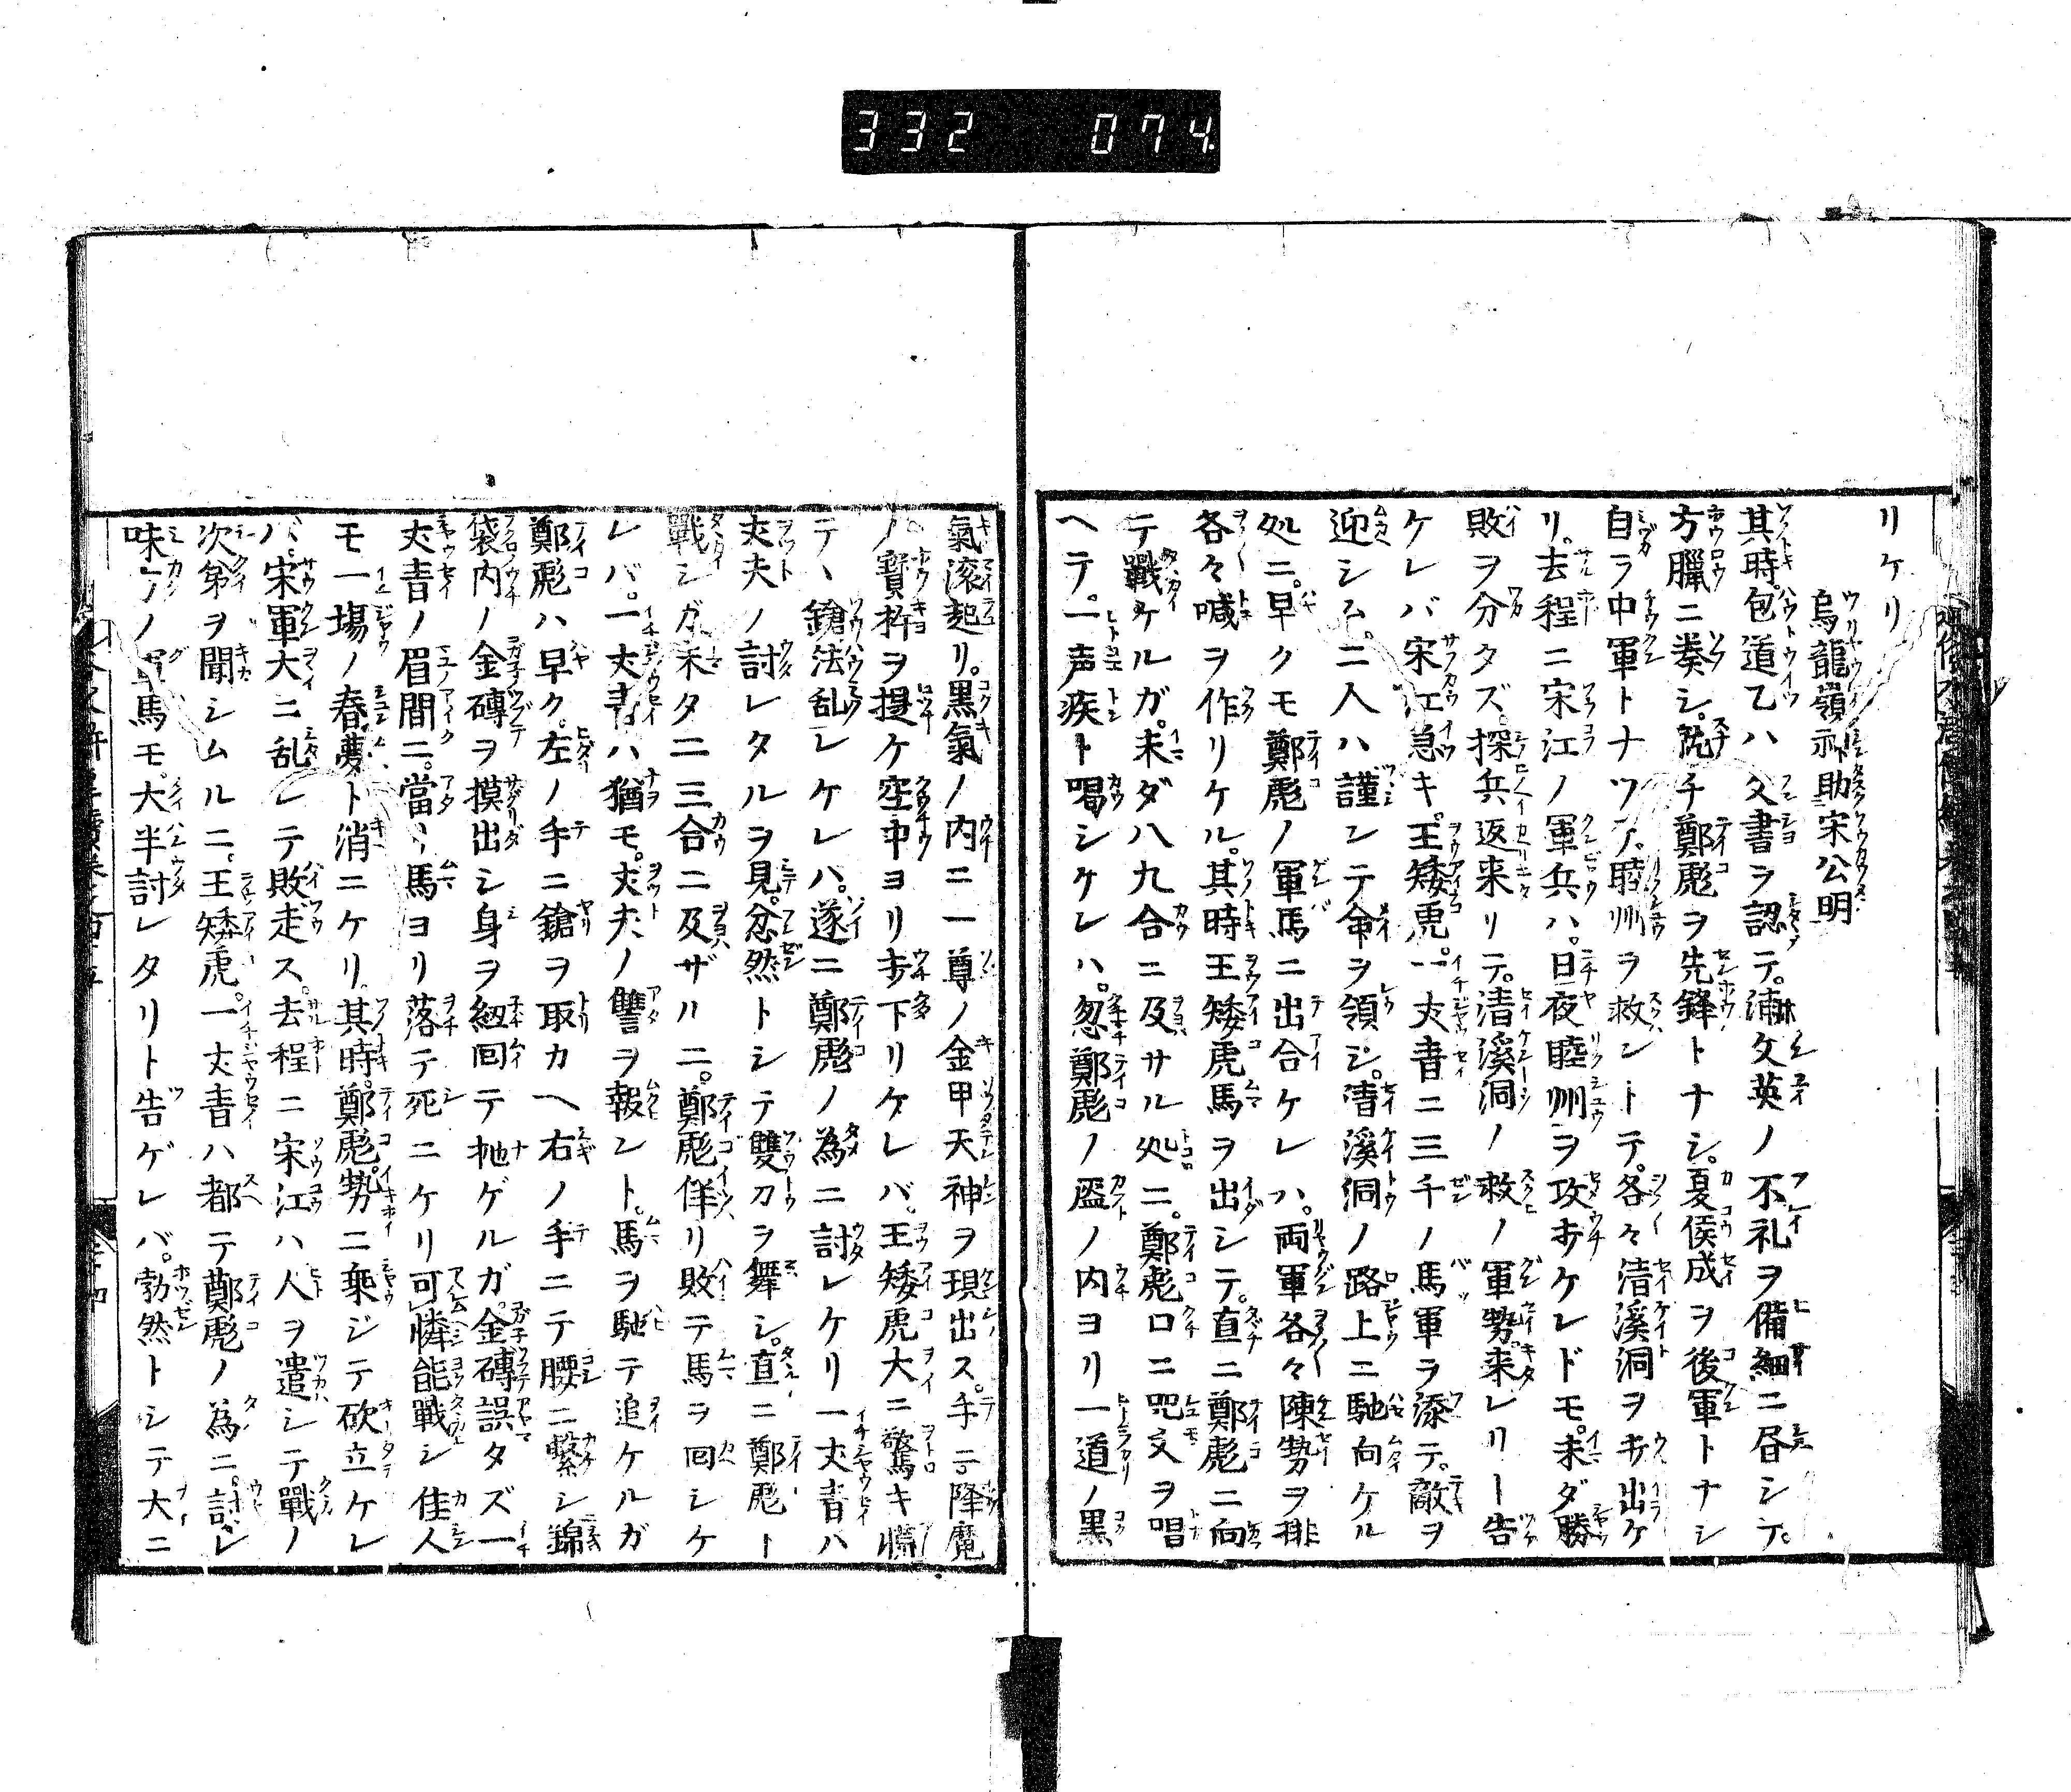 332 074
リケリ
烏龍嶺神助宋公明
其時。包道乙ハ文書ヲ認テ。浦文英ノ不礼ヲ備細ニ昏シテ。
方臘ニ奏シ。就チ鄭彪ヲ先鋒トナシ。夏侯成ヲ後軍トナシ
自ラ中軍トナツテ。睦州ヲ救ントテ。各々清溪洞ヲ打出ケ
リ。去程ニ宋江ノ軍兵ハ。日夜睦州ヲ攻打ケレドモ。未ダ勝
敗ヲ分タズ。探兵返来リテ。清溪洞ノ救ノ軍勢。来レリト告
ケレバ宋江急キ。王矮虎。一丈青ニ三千ノ馬軍ヲ添テ。敵ヲ
迎シム。二人ハ謹ンテ命ヲ領シ。清溪洞ノ路上ニ馳向ケル
処ニ。早クモ鄭彪ノ軍馬ニ出合ケレハ。両軍各々陳勢ヲ排
各々喊ヲ作リケル。其時王矮虎馬ヲ出シテ。直ニ鄭彪ニ向
テ戰ケルガ。未ダ八九合ニ及サル処ニ。鄭彪口ニ咒文ヲ唱
ヘテ。一声疾ト喝シケレハ。忽鄭彪ノ盔ノ内ヨリ一道ノ黒
氣滚起リ。黒氣ノ内ニ一尊ノ金甲天神ヲ現出ス。手ニ降魔
ノ寳杵ヲ提ケ空中ヨリ打下リケレバ。王矮虎大ニ驚キ慌
テヽ鎗法乱レケレハ。遂ニ鄭彪ノ為ニ討レケリ一丈青ハ
丈夫ノ討レタルヲ見。忿然トシテ雙刀ヲ舞シ。直ニ鄭彪ト
戰シガ未タ二三合ニ及ザルニ。鄭彪佯リ敗テ馬ヲ回シケ
レバ。一丈青ハ猶モ。丈夫ノ讐ヲ報ント。馬ヲ馳テ追ケルガ
鄭彪ハ早ク。左ノ手ニ鎗ヲ取カヘ右ノ手ニテ腰ニ繋シ錦
袋内ノ金磚ヲ摸出シ身ヲ紐回テ抛ゲルガ。金磚誤タズ一
丈青ノ眉間ニ。當ヽ馬ヨリ落テ死ニケリ可憐能戰シ佳人
モ一場ノ春夢ト消ニケリ。其時。鄭彪勢ニ乘ジテ砍立ケレ
バ。宋軍大ニ乱レテ敗走ス。去程ニ宋江ハ人ヲ遣シテ戰ノ
次第ヲ聞シムルニ。王矮虎。一丈青ハ都テ鄭彪ノ為ニ。討レ
味方ノ軍馬モ。大半討レタリト告ゲレバ。勃然トシテ大ニ